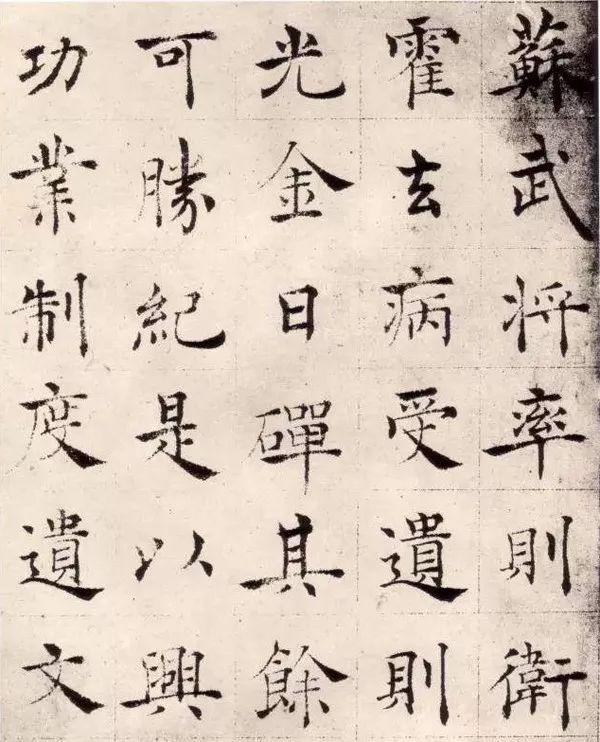 蘇武将率則衛
霍去病受遺則
光金日磾其餘
可勝紀是以興
功業制度遺文